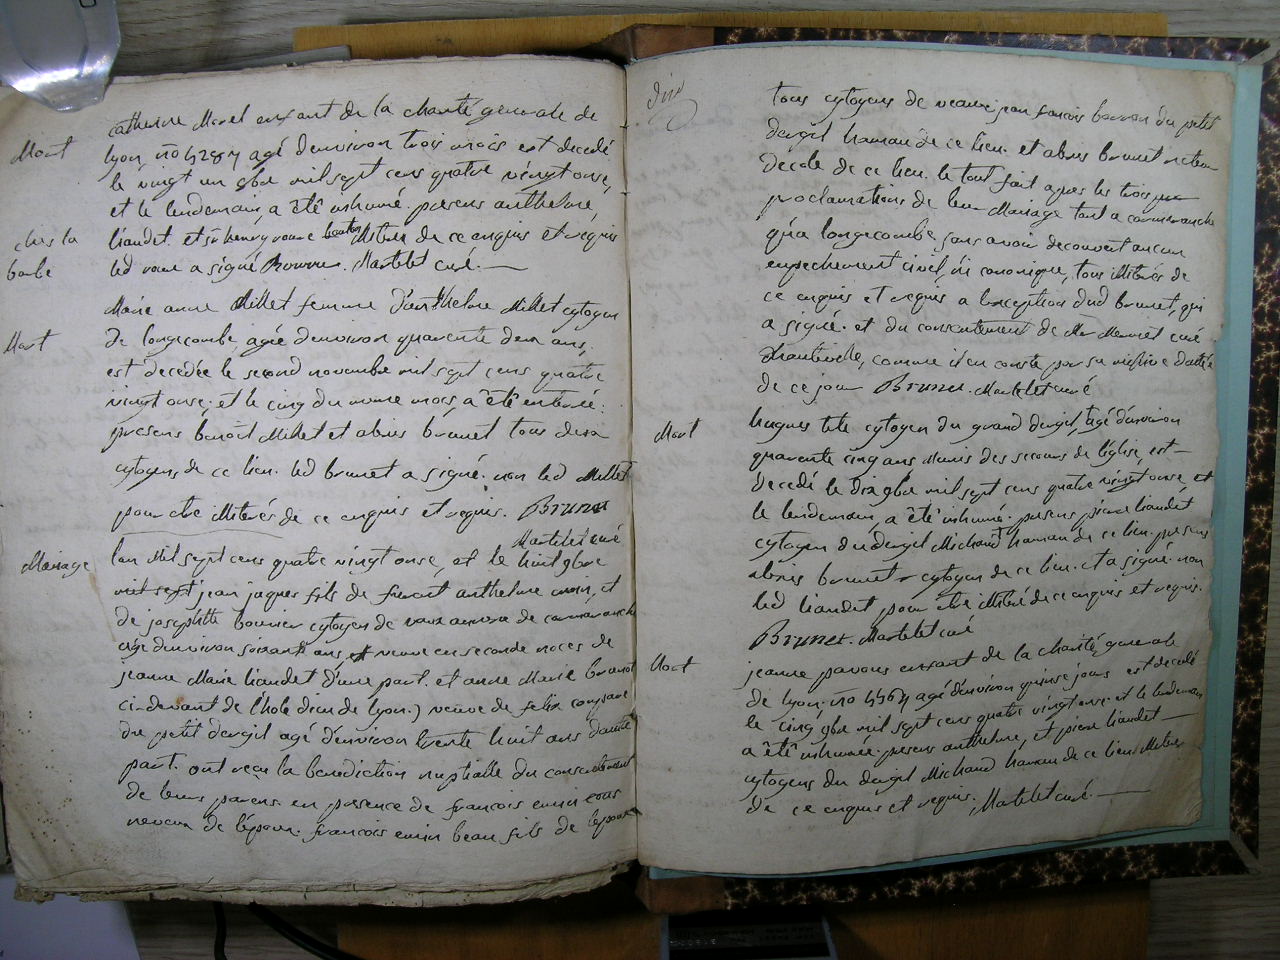 Mort
catherine Morel enfant de la charité generale de
lyon, no 4284 agé d'environ trois mois est decedé
le vingt un 9bre mil sept cens quatre vingt onse,
et le lendemain, a été inhumé. presens anthelme,
chés la
barbe
liaudet. et sr henry illiteré de ce enquis et requis
led a signé. Martelet curé.
Mort
Marie anne Millet femme d'anthelme Millet cytoyen
de longecombe agée d'environ quarente deux ans,
est decedée le second novembre mil sept cens quatre
vingt onse, et le cinq du meme mois, a été enterré.
presens benoit Millet et abris brunet tous deux
cytoyens de ce lieu. led brunet a signé. non led Millet
pour etre illiterés de ce enquis et requis. Brunet
Martelet curé
Mariage
lan Mil sept cens quatre vingt onse, et le huit 9bre
mil sept jean jaques fils de anthelme et
de josephtte cytoyen de de
agé d'environ soixante ans, et veuve en seconde noces de
jeanne Marie liaudet d'une part. et anne Marie brunot
ci-devant de l'hotel dieu de lyon.) veuve de felix
du petit dergil agé d'environ trente huit ans d'autre
part. ont reçu la benediction nuptialle du consentement
de leurs parens en presence de francois emin
neveux de l'epoux. francois emin beau fils de l'epoux
tous cytoyens de jean francois du petit
dergil hameau de ce lieu. et abris brunet recteur
decole de ce lieu. le tout fait apres les trois
proclamations de leur Mariage tant a cormaranche
qu'a longecombe sans avoir decouvert aucun
enpechement civil, ni canonique, tous illiterés de
ce enquis et requis a l'exception dud brunet, qui
a signé. et du consentement de Mr Mermet curé
d'hauteville, comme il en conste par sa missive dattée
de ce jour Brunet. Martelet curé
Mort
hugues tete cytoyen du grand dergil, agé d'environ
quarente cinq ans Munis des secours de l'église, est
decedé le dix 9bre mil sept cens quatre vingt onse, et
le lendemain, a été inhumé. presens pierre liaudet
cytoyen du dergil Michaud hameau de ce lieu. presens
abris brunet cytoyen de ce lieu. et a signé. non
led liaudet, pour etre illiteré de ce enquis et requis.
Brunet. Martelet curé
Mort
jeanne pavons enfant de la charité generale
de lyon. no 4564 agé d'environ quinse jours est decedé
le cinq 9bre mil sept cens quatre vingt onse. et le lendemain
a été inhumée. presens anthelme, et pierre liaudet
cytoyens du dergil Michaud hameau de ce lieu illiterés
de ce enquis et requis. Martelet curé.